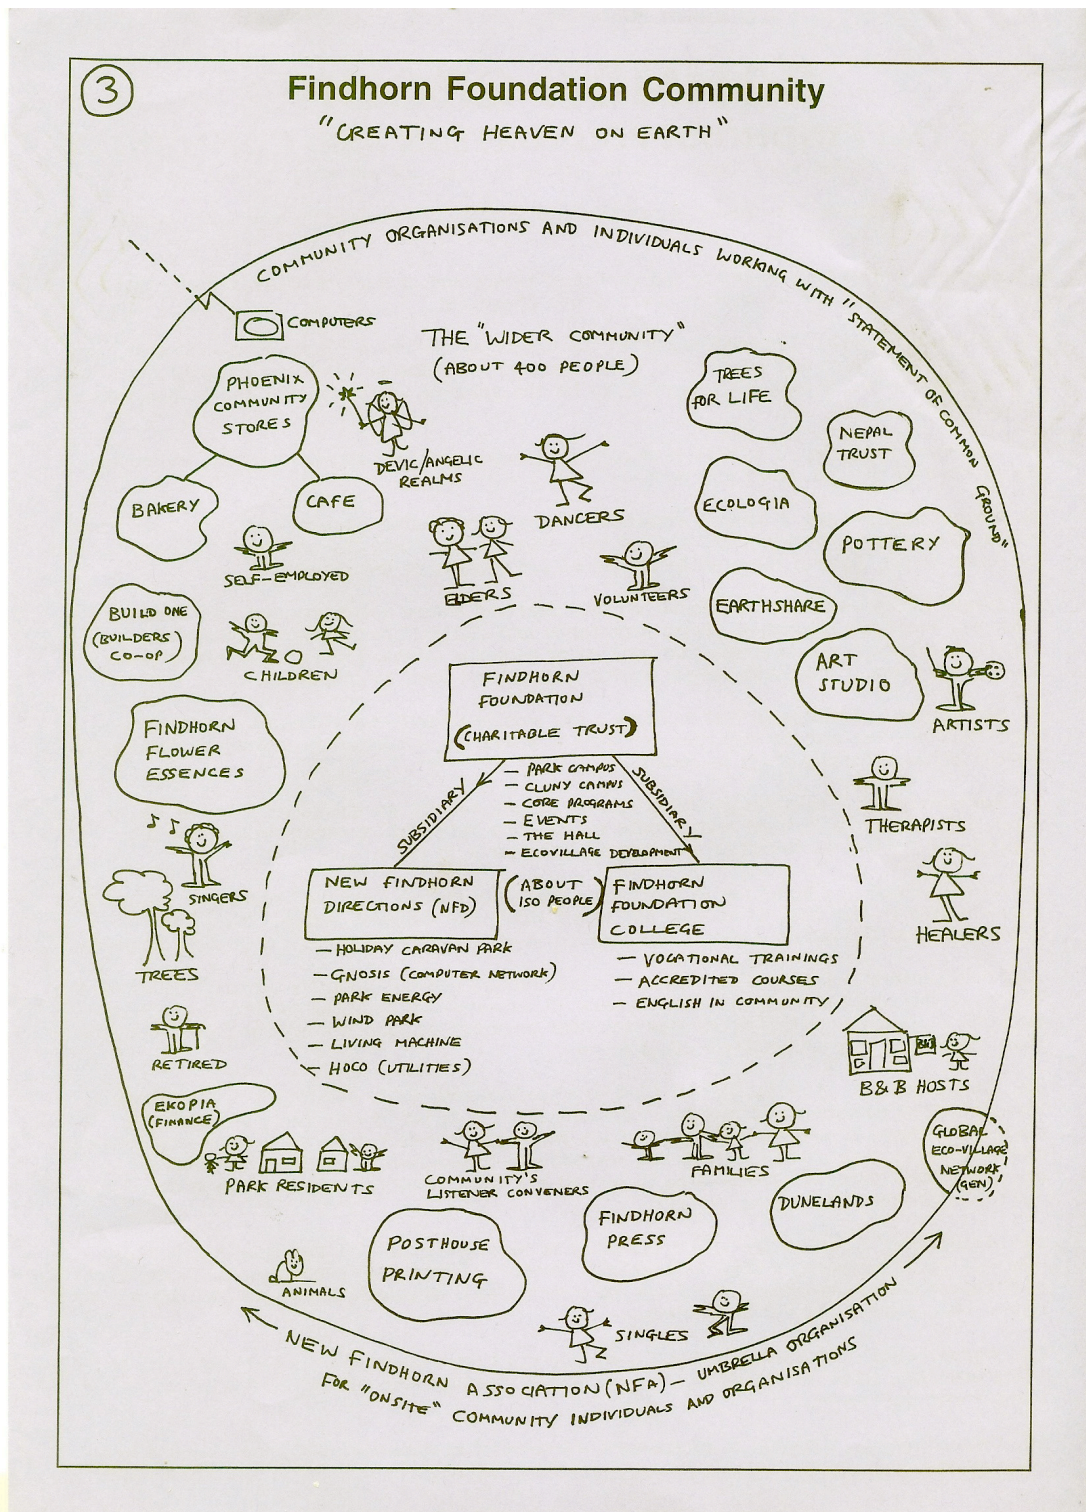 3
Findhorn Foundation Community
"CREATING HEAVEN ON EARTH"
COMMUNITY ORGANISATIONS AND INDIVIDUALS WORKING WITH "STATEMENT OF COMMON GROUND"
COMPUTERS
THE "WIDER COMMUNITY"
(ABOUT 400 PEOPLE)
PHOENIX
COMMUNITY
STORES
BAKERY
CAFE
DEVIC/ANGELIC
REALMS
DANCERS
TREES
FOR LIFE
NEPAL
TRUST
ECOLOGIA
POTTERY
SELF-EMPLOYED
ELDERS
VOLUNTEERS
EARTHSHARE
BUILD ONE
(BUILDERS)
CO-OP)
CHILDREN
ART
STUDIO
ARTISTS
FINDHORN
FLOWER
ESSENCES
FINDHORN
FOUNDATION
(CHARITABLE TRUST)
SUBSIDIARY
SUBSIDIARY
- PARK CAMPUS
- CLUNY CAMPUS
- CORE PROGRAMS
- EVENTS
- THE HALL
- ECOVILLAGE DEVELOPMENT
THERAPISTS
SINGERS
NEW FINDHORN
DIRECTIONS (NFD)
(ABOUT
150 PEOPLE)
FINDHORN
FOUNDATION
COLLEGE
HEALERS
- HOLIDAY CARAVAN PARK
- GNOSIS (COMPUTER NETWORK)
- PARK ENERGY
- WIND PARK
- LIVING MACHINE
- HOCO (UTILITIES)
- VOCATIONAL TRAININGS
- ACCREDITED COURSES
- ENGLISH IN COMMUNITY
TREES
RETIRED
B&B
B&B HOSTS
EKOPIA
(FINANCE)
PARK RESIDENTS
COMMUNITY'S
LISTENER CONVENERS
FAMILIES
GLOBAL
ECO-VILLAGE
NETWORK
(GEN)
DUNELANDS
FINDHORN
PRESS
POSTHOUSE
PRINTING
ANIMALS
SINGLES
NEW FINDHORN ASSOCIATION (NFA) - UMBRELLA ORGANISATION
FOR "ONSITE" COMMUNITY INDIVIDUALS AND ORGANISATIONS